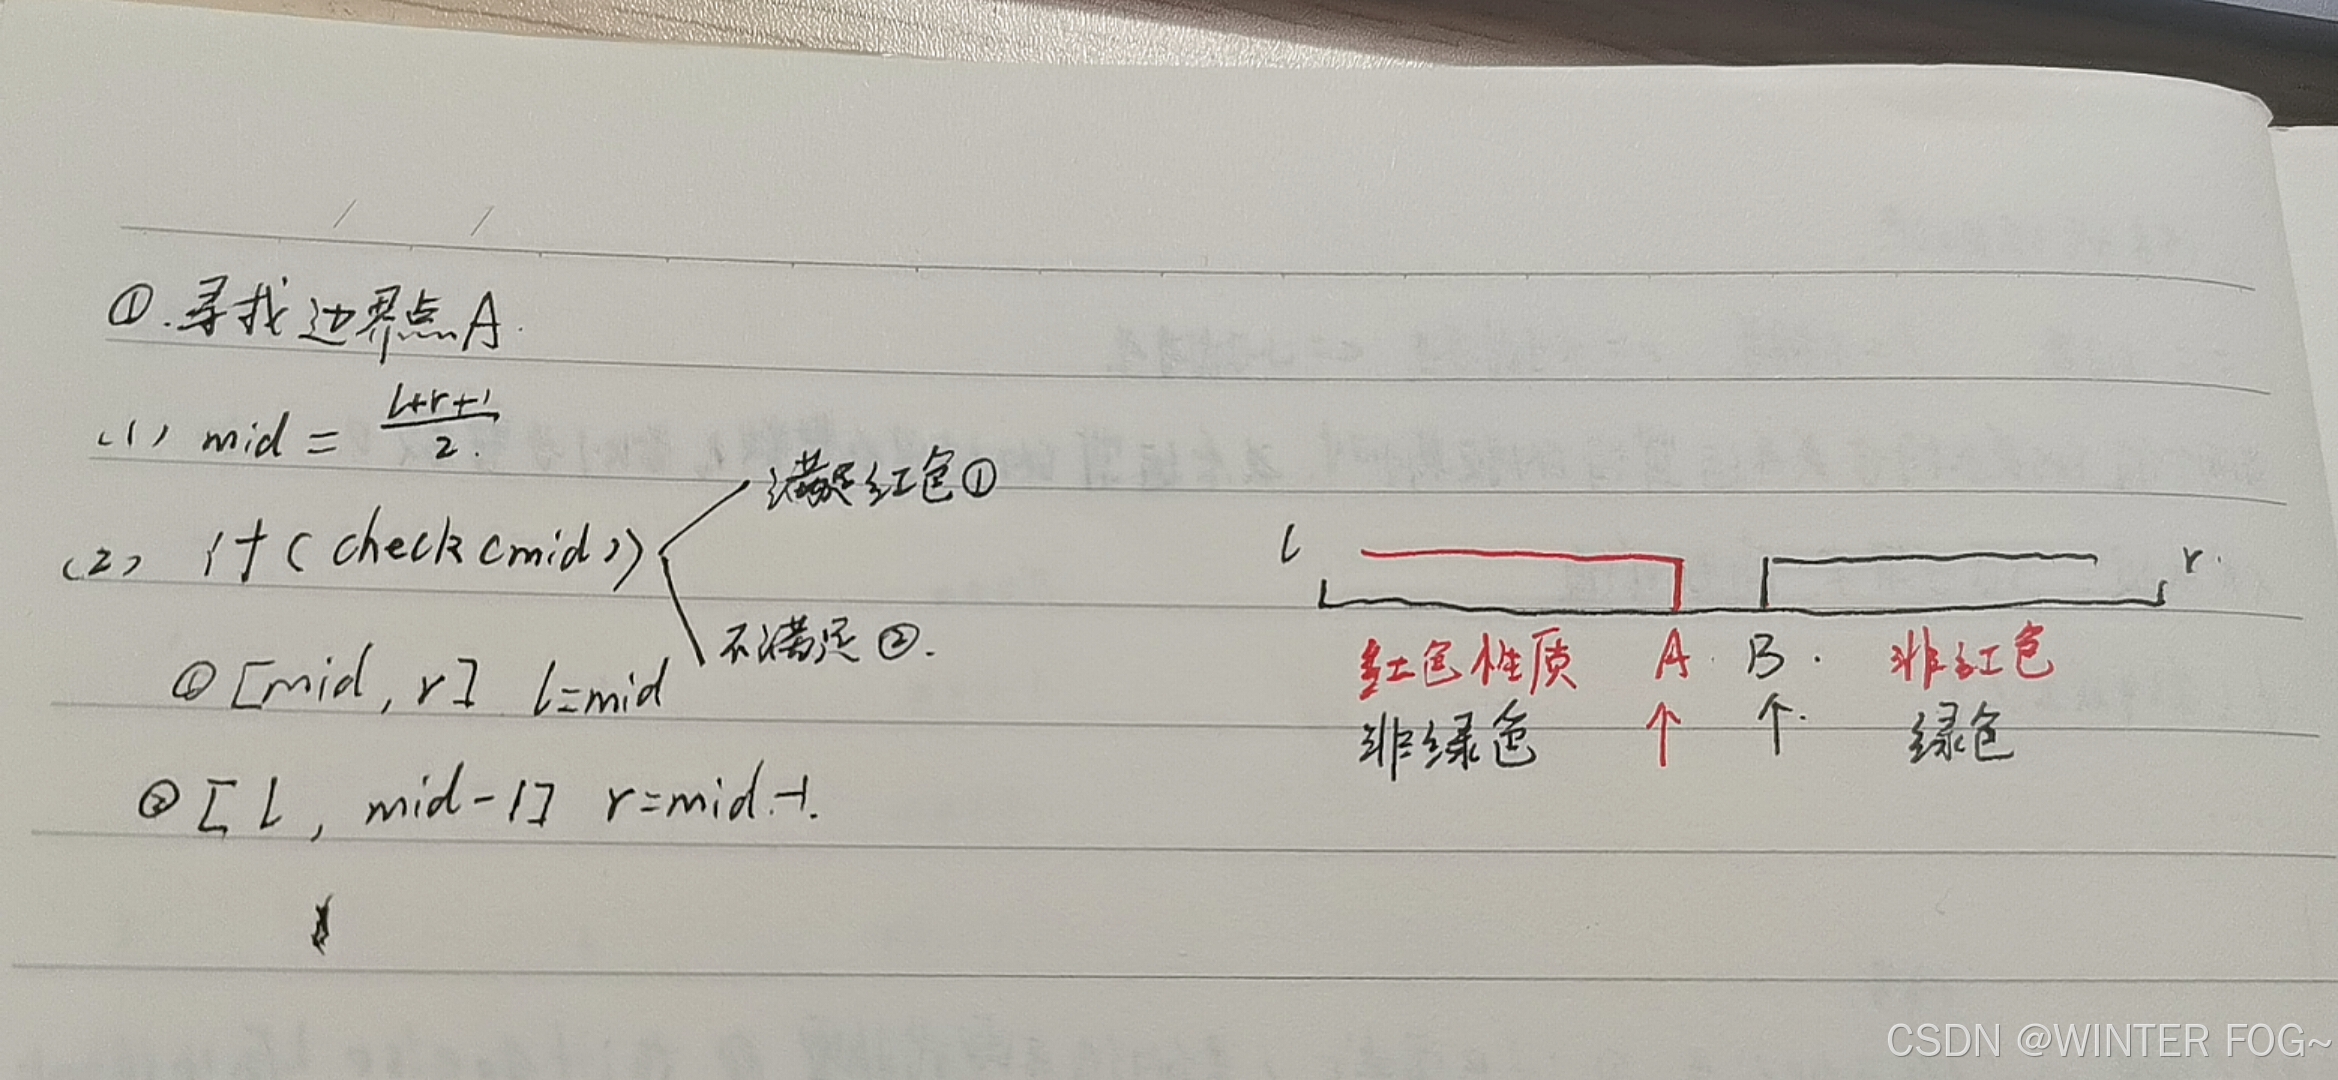 ①.寻找边界点A.
(1) mid = (l+r+1)/2.
(2) if(check(mid))
满足红色①
不满足②.
①[mid, r] l=mid
②[l, mid-1] r=mid-1.
l r.
红色性质 A. B. 非红色
非绿色 ↑ 个. 绿色
CSDN @WINTER FOG~